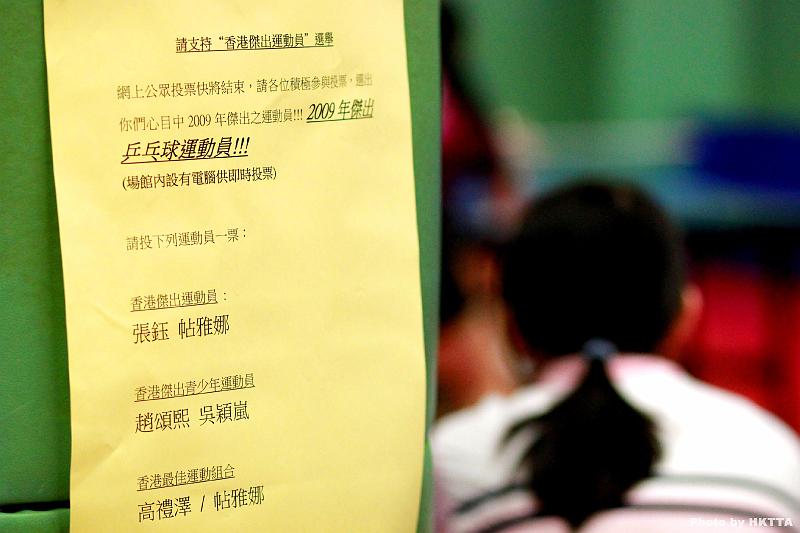 請支持“香港傑出運動員”選舉
網上公眾投票快將結束，請各位積極參與投票，選出
你們心目中 2009 年傑出之運動員!!! 2009 年傑出
乒乓球運動員!!!
(場館內設有電腦供即時投票)
請投下列運動員一票：
香港傑出運動員：
張鈺 帖雅娜
香港傑出青少年運動員
趙頌熙 吳穎嵐
香港最佳運動組合
高禮澤 / 帖雅娜
Photo by HKTTA